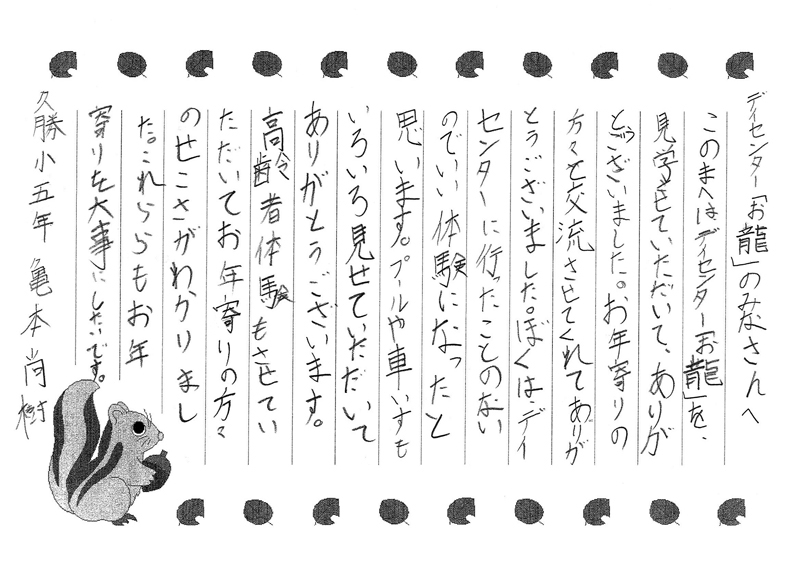 デイセンター「お龍」のみなさんへ
このまへはデイセンター「お龍」を、
見学させていただいて、ありが
とうございました。お年寄りの
方々と交流させてくれてありが
とうございました。ぼくはデイ
センターに行ったことのない
のでいい体験になったと
思います。プールや車いすも
いろいろ見せていただいて
ありがとうございます。
高齢者体験もさせてい
ただいてお年寄りの方々
のせこさがわかりまし
た。これららもお年
寄りを大事にしたいです。
久勝小五年 亀本尚樹